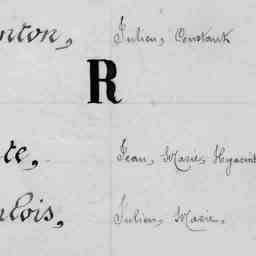 nton, Julien, Constant
R
te, Jean, Marie, Hyacint
lois, Julien, Marie.